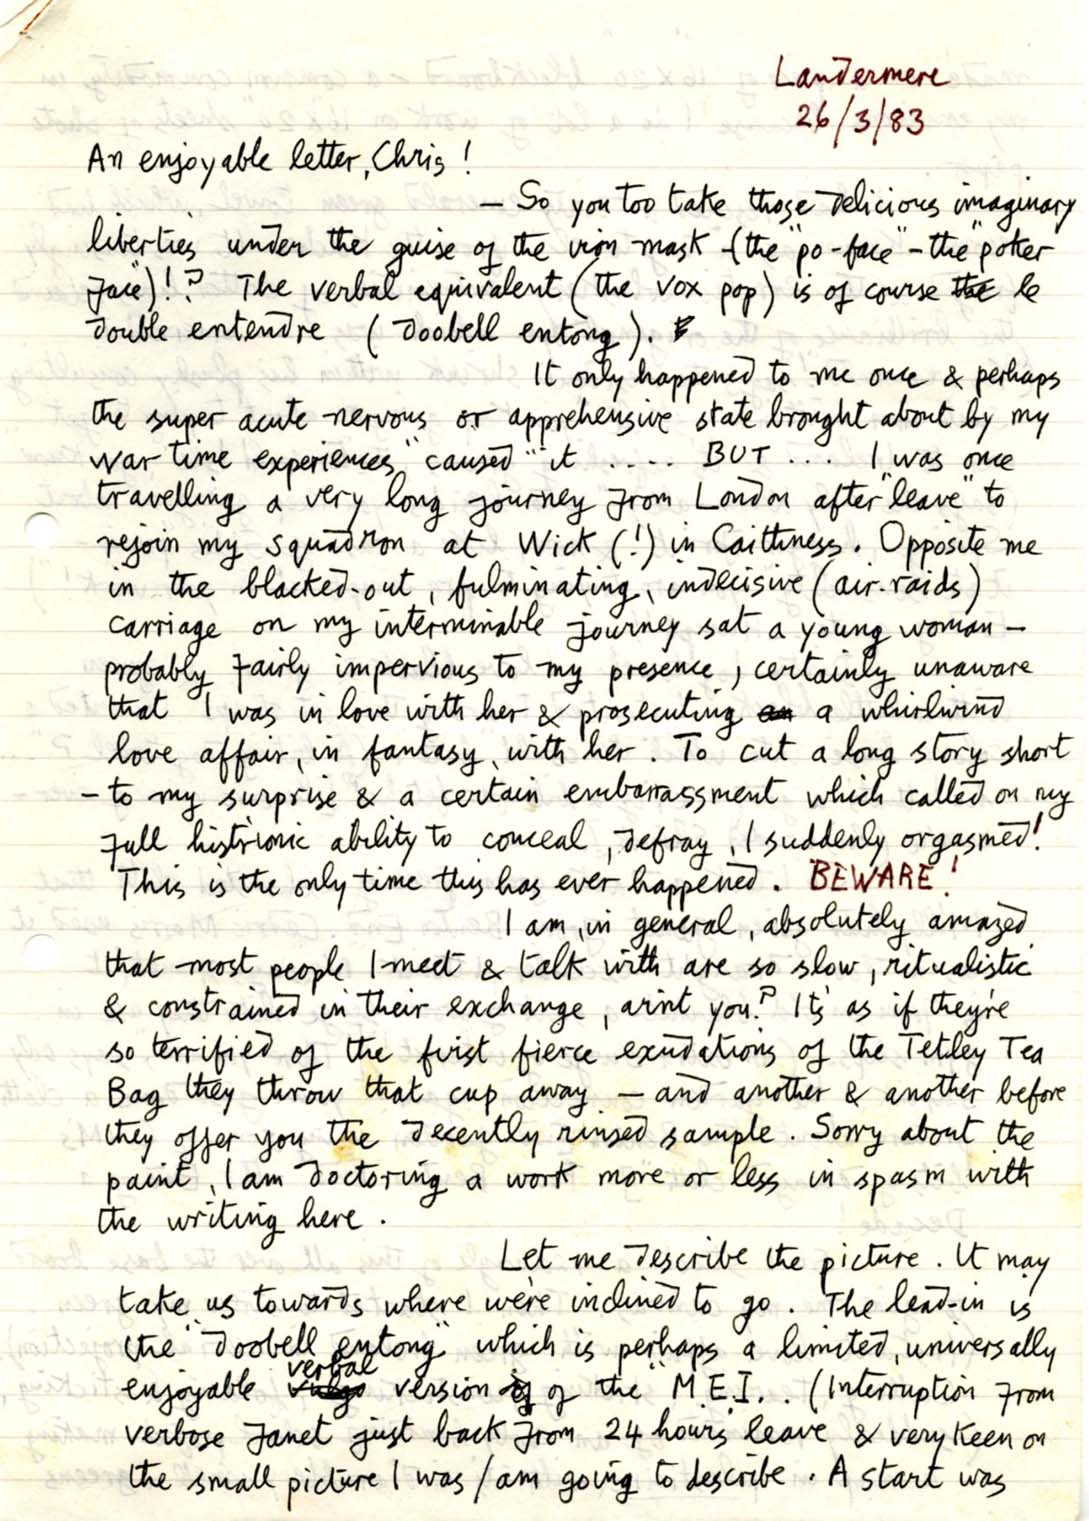 Landermere
26/3/83
An enjoyable letter, Chris!
— So you too take those delicious imaginary
liberties under the guise of the iron mask – (the "po-face" – the "poker
face")!? The verbal equivalent (the vox pop) is of course the le
double entendre (doobell entong).
It only happened to me once & perhaps
the super acute nervous or apprehensive state brought about by my
war time experiences "caused" it .... BUT ... I was once
travelling a very long journey from London after "leave" to
rejoin my squadron at Wick (!) in Caithness. Opposite me
in the blacked-out, fulminating, indecisive (air-raids)
carriage on my interminable journey sat a young woman –
probably fairly impervious to my presence, certainly unaware
that I was in love with her & prosecuting an a whirlwind
love affair, in fantasy, with her. To cut a long story short
– to my surprise & a certain embarrassment which called on my
full histrionic ability to conceal, defray, I suddenly orgasmed!
This is the only time this has ever happened. BEWARE!
I am, in general, absolutely amazed
that most people I meet & talk with are so slow, ritualistic
& constrained in their exchange, arint you? It's as if they're
so terrified of the first fierce exudations of the Tetley Tea
Bag they throw that cup away – and another & another before
they offer you the decently rinsed sample. Sorry about the
paint, I am doctoring a work more or less in spasm with
the writing here.
Let me describe the picture. It may
take us towards where we're inclined to go. The lead-in is
the "doobell entong" which is perhaps a limited, universally
enjoyable verbal version of of the "M.E.I.. (Interruption from
verbose Janet just back from 24 hours leave & very keen on
the small picture I was/am going to describe. A start was